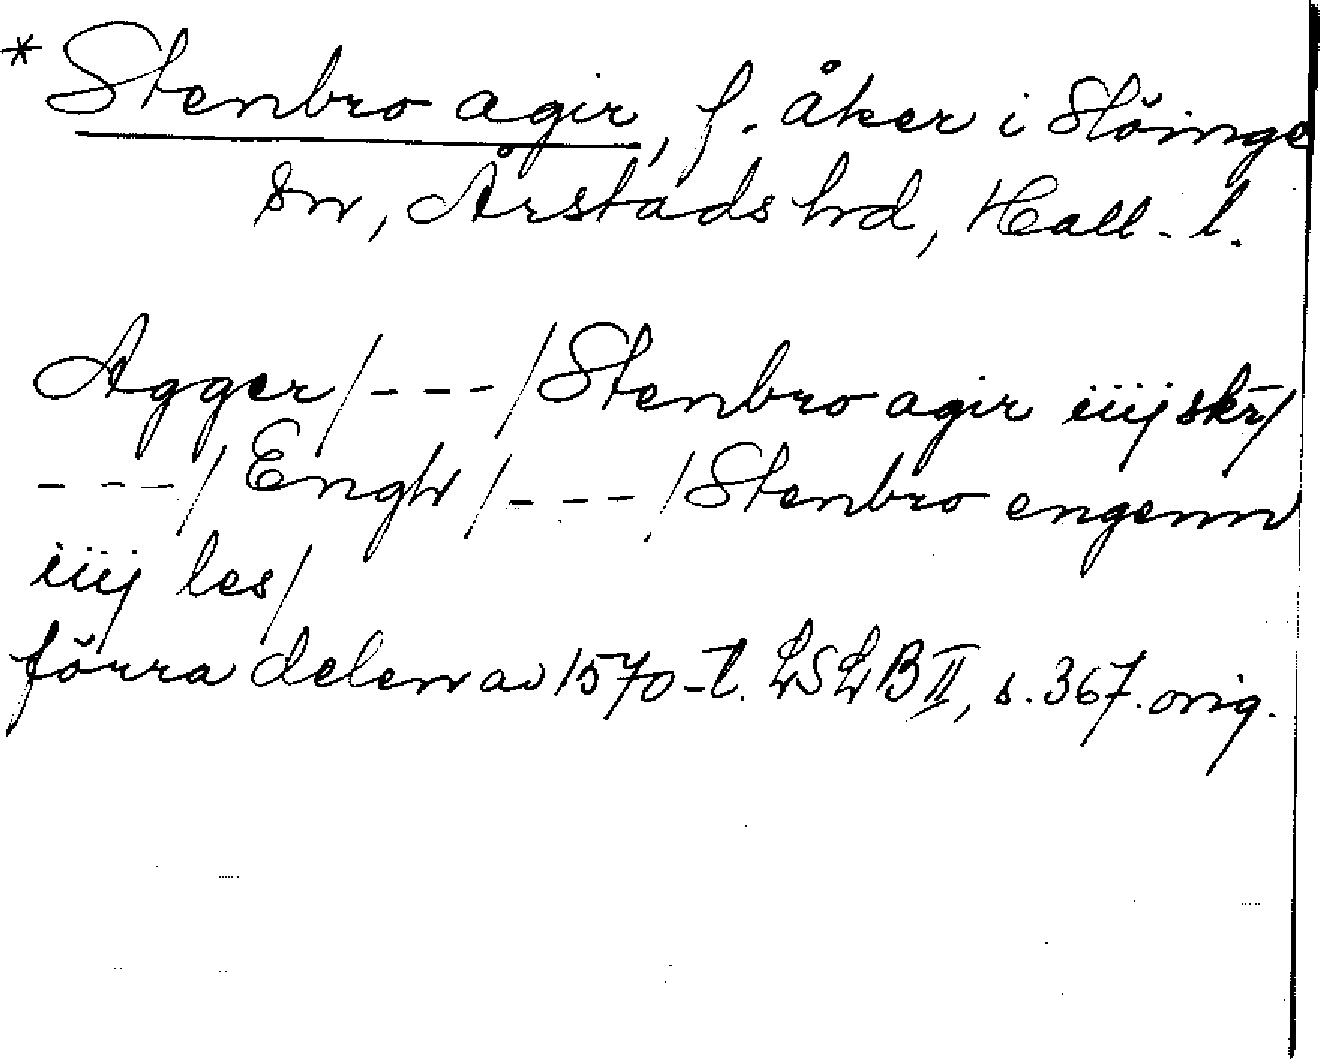 * Stenbro agir, f. åker i Slöinge
sn, Årstads hd, Hall. l.
Agger/---/Stenbro agir iiij skr/
---/Engh/---/Stenbro engenn
iiij les/
förra delen av 1570-t. LSLB II, s. 367. orig.